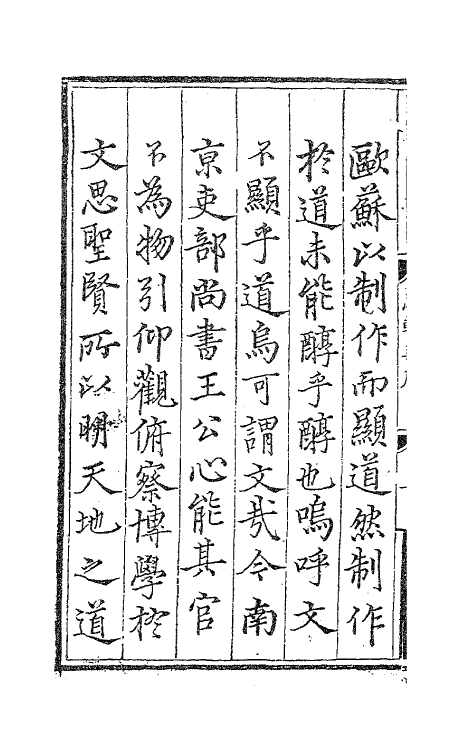 歐蘇以制作而顯道然制作
於道未能醇乎醇也嗚呼文
不顯乎道烏可謂文㢤今南
京吏部尚書王公心能其官
不為物引仰觀俯察博學於
文思聖賢所以明天地之道